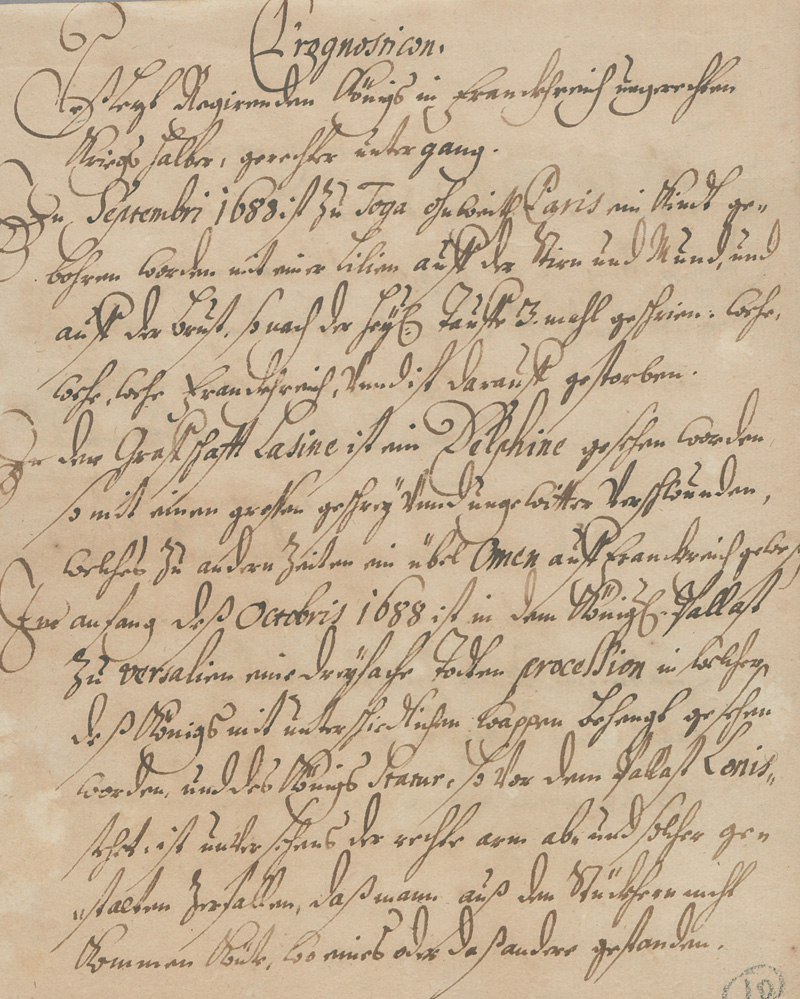 Prognosticon.
Deß Jetzt Regirenden Königs in Franckhreich ungerechten
Kriegs halber, gerechter untergang.
In Septembri 1688 ist zu Toga ohnweith Paris ein Kindt ge-
bohren worden mit einer Lilien auff der Stirn und Mund, und
auff der Brust, so nach der heyl. Tauffe 3. mahl geschrien: wehe,
wehe, wehe Franckhreich, vnnd ist darauff gestorben.
In der Graffschafft Lasine ist ein Delphine gesehen worden
so mit einen grossen geschrey vnnd ungewitter verschwunden,
welches zu andern Zeiten ein übel Omen auff Franckreich gewest
Im anfang deß Octobris 1688 ist in dem Königl. Pallast
zu versalien eine dreyfache Todten procession in welcher
deß Königs mit unterschiedlichen wappen behengt gesehen
worden, und des Königs Statue, so vor dem Pallast Louis,,
stehet, ist unversehens der rechte arm ab, und solcher ge=
stalten zerfallen, daß mann auß den Stückhern nicht
kommen Könte, wo eines oder daß andere gestanden.
10